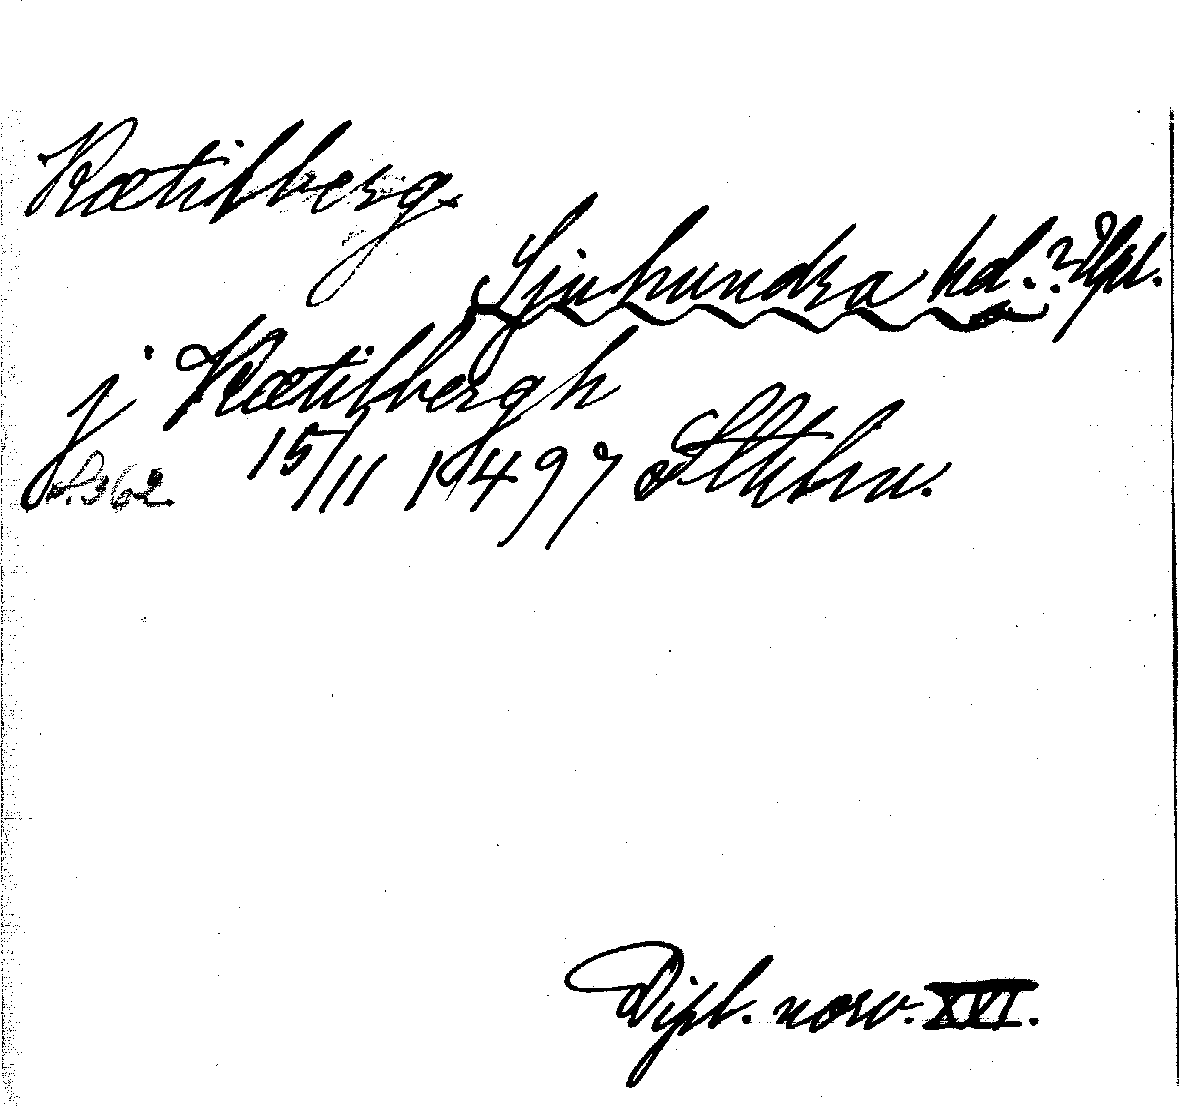 Kætilberg.
Sjuhundra hd.? Upl.
j Kætilbergh
s. 362. 15/11 1497 Sthlm.
Dipl. norv. XVI.